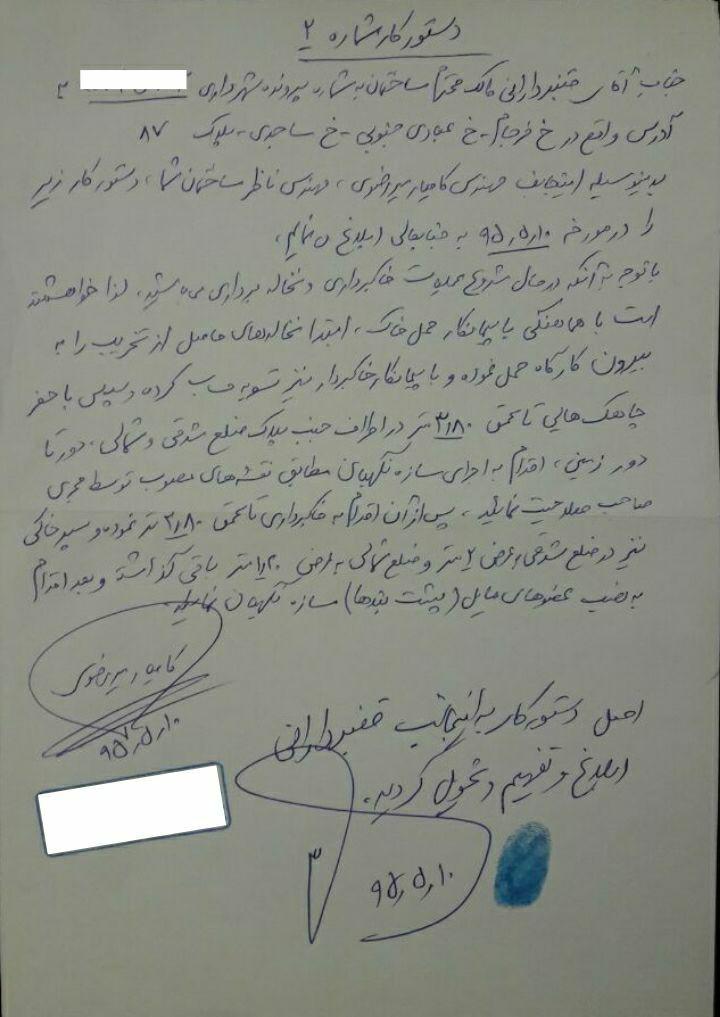 دستور کار شماره ۲
جناب آقای قنبر دارانی مالک محترم ساختمان به شماره پرونده شهرداری
آدرس واقع در خ فرجام - خ عبادی جنوبی - خ ساجدی - پلاک ۸۷
بدینوسیله اینجانب مهندس کامیار میررضوی، مهندس ناظر ساختمان شما، دستور کار زیر
را در مورخه ۹۵,۵,۱۰ به جنابعالی ابلاغ می نمایم،
با توجه به آنکه در حال شروع عملیات خاکبرداری و نخاله برداری می باشید، لذا خواهشمند
است با هماهنگی با پیمانکار حمل خاک، ابتدا نخاله‌های حاصل از تخریب را به
بیرون کارگاه حمل نموده و با پیمانکار خاکبردار نیز تسویه حساب کرده و سپس با حفر
چاهک هایی تا عمق ۳,۸۰ متر در اطراف جنب پلاک ضلع شرقی و شمالی، دور تا
دور زمین، اقدام به اجرای سازه نگهبان مطابق نقشه های مصوب توسط مجری
صاحب صلاحیت نمائید، پس از آن اقدام به خاکبرداری تا عمق ۳,۸۰ متر نموده و سپر خاکی
نیز در ضلع شرقی به عرض ۲ متر و ضلع شمالی به عرض ۱,۲۰ متر باقی گذاشته و بعد اقدام
به نصب عضوهای مایل (پشت بندها) سازه نگهبان نمایید.
کامیار میررضوی
۹۵,۵,۱۰
اصل دستور کار به اینجانب قنبر دارانی
ابلاغ و تفهیم و تحویل گردید.
۹۵,۵,۱۰